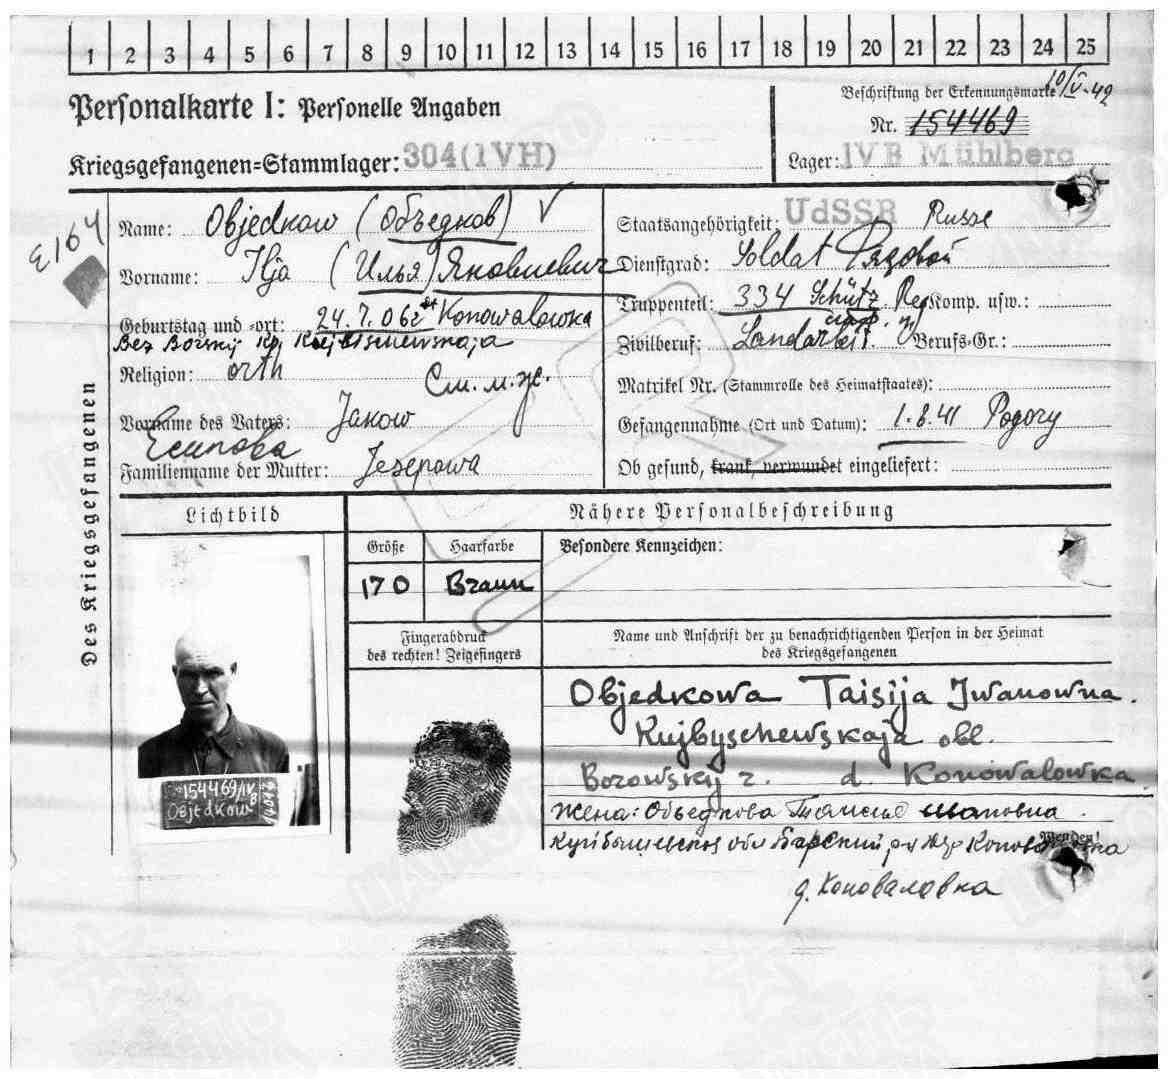 1 2 3 4 5 6 7 8 9 10 11 12 13 14 15 16 17 18 19 20 21 22 23 24 25
Personalkarte I: Personelle Angaben
Beschriftung der Erkennungsmarke 10/V-42
Nr. 154469
Kriegsgefangenen=Stammlager: 304(IVH)
Lager: IVB Mühlberg
Des Kriegsgefangenen
Name: Objedkow (Объедков)
Vorname: Ilja (Илья) Яковлевич
Geburtstag und -ort: 24.7.06 Konowalowka
Religion: orth
См. м. ж.
Vorname des Vaters: Jakow
Есипова
Familienname der Mutter: Jesepowa
Staatsangehörigkeit: UdSSR Russe
Dienstgrad: Soldat Рядовой
Truppenteil: 334 Schütz. Reg Komp. usw.:
Zivilberuf: Landarbeit. Berufs-Gr.:
Matrikel Nr. (Stammrolle des Heimatstaates):
Gefangennahme (Ort und Datum): 1.8.41 Pogory
Ob gesund, krank, verwundet eingeliefert:
Lichtbild
Nähere Personalbeschreibung
Größe Haarfarbe
170 Braun
Besondere Kennzeichen:
Fingerabdruck
des rechten! Zeigefingers
Name und Anschrift der zu benachrichtigenden Person in der Heimat
des Kriegsgefangenen
Objedkowa Taisija Iwanowna.
Kujbyschewskaja obl.
Borowskij r. d. Konowalowka
Жена: Объедкова Таисия Ивановна.
Wenden!
д. Коноваловка
154469/IV B
Objedkow